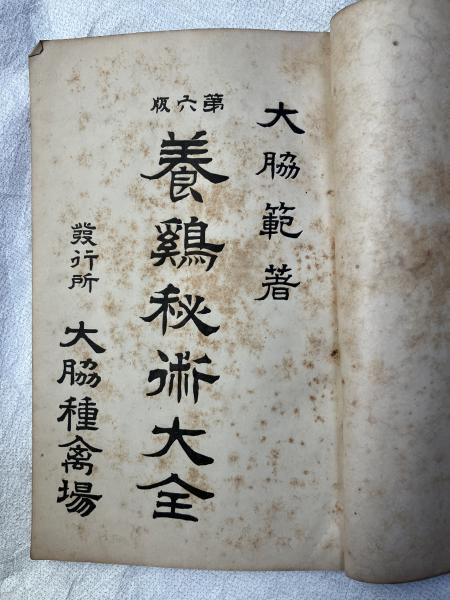 大脇範著
第六版
養鷄秘術大全
發行所 大脇種禽場